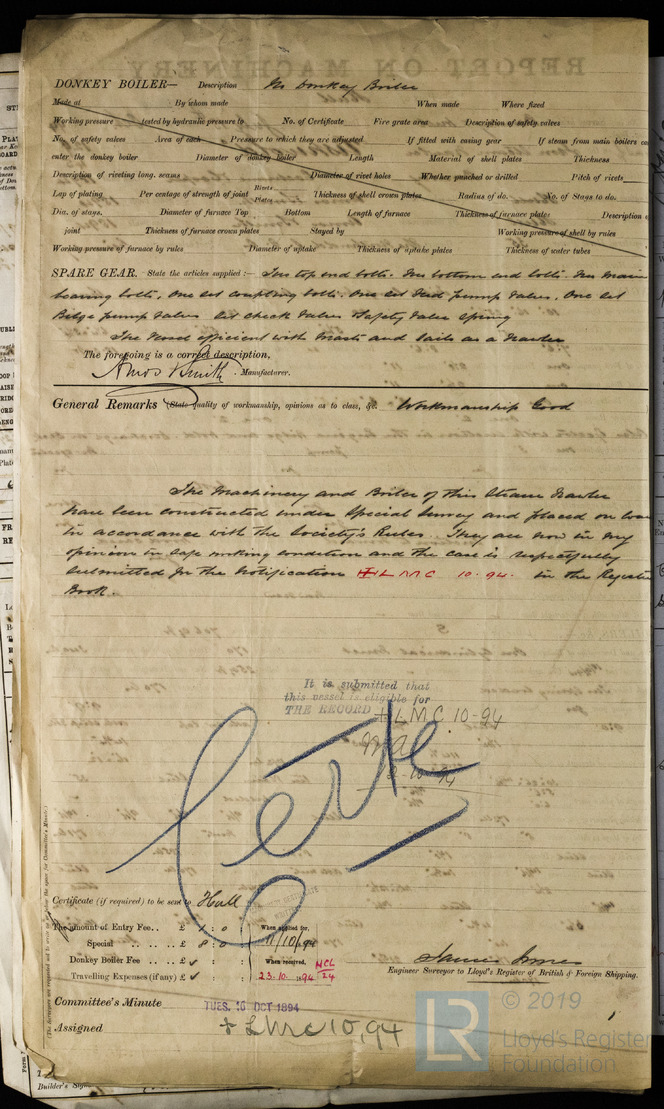 DONKEY BOILER— Description No Donkey Boiler
Made at By whom made When made Where fixed
Working pressure tested by hydraulic pressure to No. of Certificate Fire grate area Description of safety valves
No. of safety valves Area of each Pressure to which they are adjusted If fitted with easing gear If steam from main boilers ca
enter the donkey boiler Diameter of donkey boiler Length Material of shell plates Thickness
Description of riveting long. seams Diameter of rivet holes Whether punched or drilled Pitch of rivets
Lap of plating Per centage of strength of joint Rivets Plates Thickness of shell crown plates Radius of do. No. of Stays to do.
Dia. of stays. Diameter of furnace Top Bottom Length of furnace Thickness of furnace plates Description o
joint Thickness of furnace crown plates Stayed by Working pressure of shell by rules
Working pressure of furnace by rules Diameter of uptake Thickness of uptake plates Thickness of water tubes
SPARE GEAR. State the articles supplied:— Two top end bolts. Two bottom end bolts. Two main
bearing bolts, One set coupling bolts. One set Feed pump valves, One set
Bilge pump valves Set check valves Safety valve Spring
The Vessel efficient with Masts and Sails as a Trawler
The foregoing is a correct description,
Amos & Smith. Manufacturer.
General Remarks (State quality of workmanship, opinions as to class, &c. Workmanship Good
The Machinery and Boiler of this Steam Trawler
have been constructed under Special Survey and placed on
in accordance with the Society's Rules. They are now in my
opinion in safe working condition and the case is respectfully
submitted for the Notification LMC 10.94. in the Register
Book.
It is submitted that
this vessel is eligible for
THE RECORD + LMC 10-94
10 94
Certe
Certificate (if required) to be sent to Hull
The amount of Entry Fee.. £ 1 : 0 When applied for,
Special .. .. .. £ 8 : 0 11/10/94
Donkey Boiler Fee .. .. £ When received,
Travelling Expenses (if any) £ 23.10.94
James Jones
Engineer Surveyor to Lloyd's Register of British & Foreign Shipping.
Committee's Minute TUES. 16 OCT 1894
Assigned + LMC 10,94
LR © 2019
Lloyd's Register
Foundation
Builder's Sign